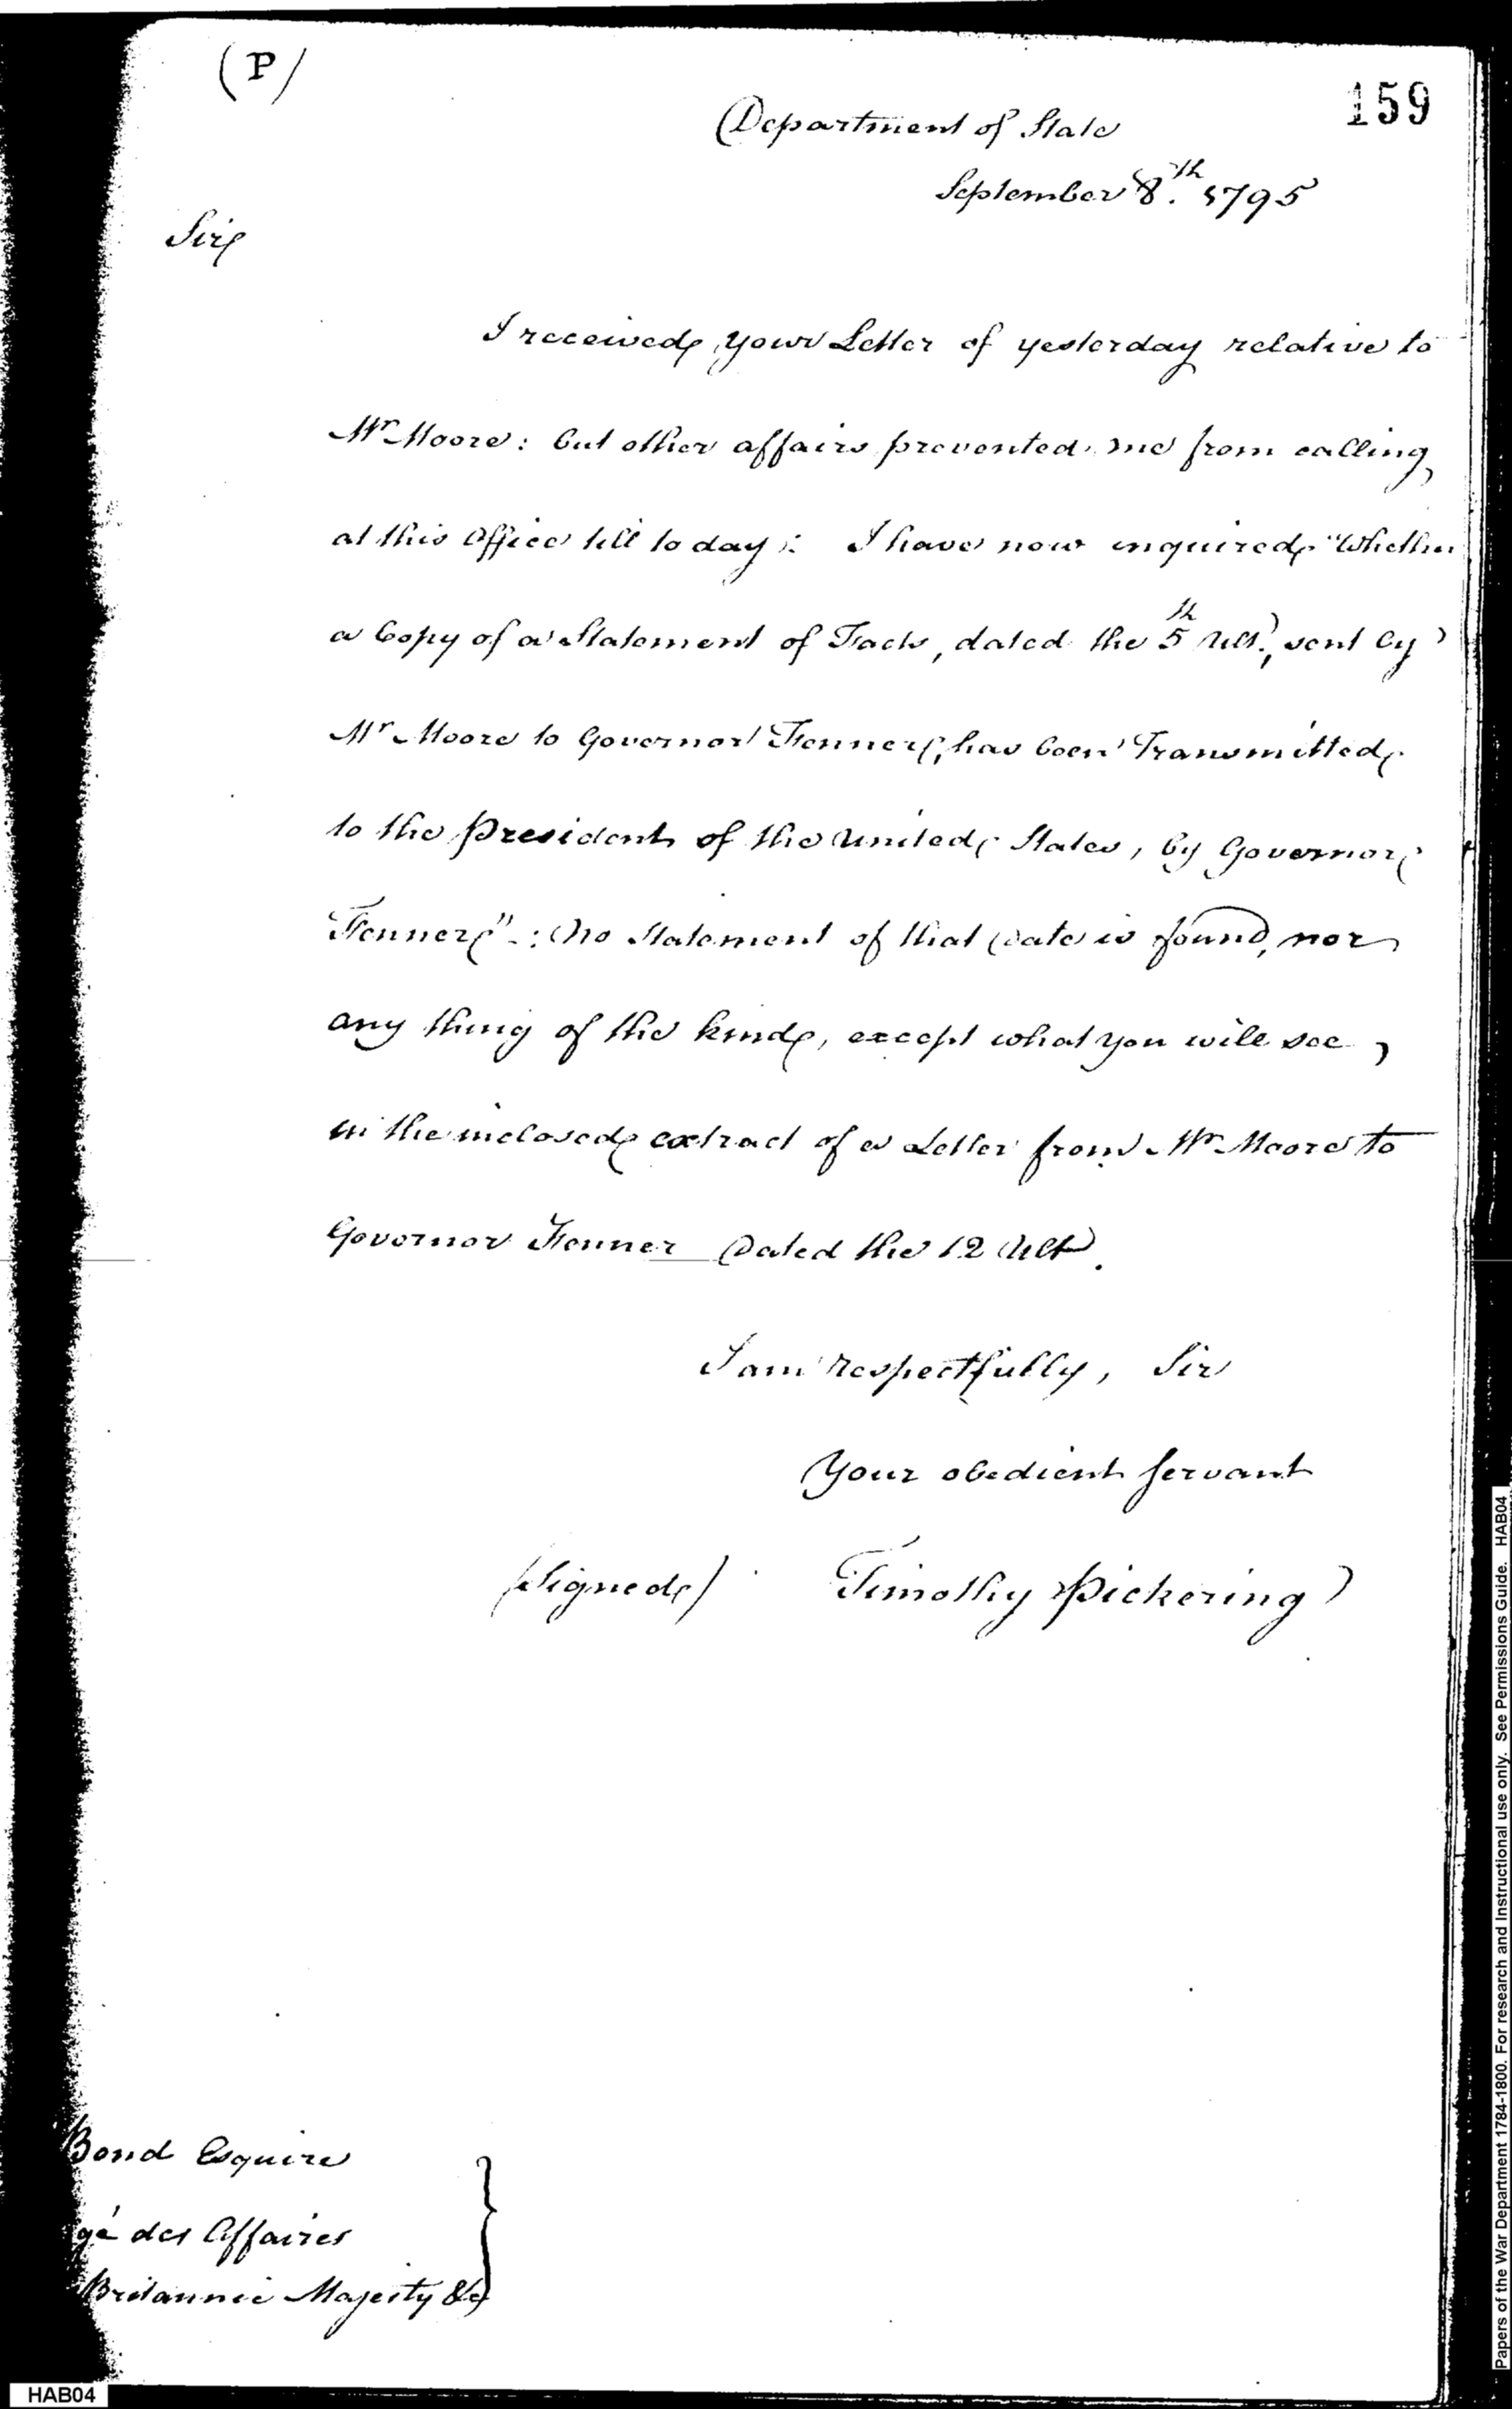 (P)
159
Department of State
September 8.th 1795
Sir
I received your Letter of yesterday relative to
Mr Moore: but other affairs prevented me from calling
at this Office till to day: I have now inquired "Whether
a Copy of a Statement of Facts, dated the 5th Ult., sent by
Mr Moore to Governor Fenner, has been Transmitted
to the President of the United States, by Governor
Fenner": No Statement of that Date is found, nor
any thing of the kind, except what you will see,
in the inclosed extract of a Letter from Mr Moore to
Governor Fenner Dated the 12 Ult.
I am respectfully, Sir
Your obedient Servant
(Signed) Timothy Pickering
Bond Esquire
gé des Affaires
Britannic Majesty &c
HAB04
Papers of the War Department 1784-1800. For research and Instructional use only. See Permissions Guide. HAB04